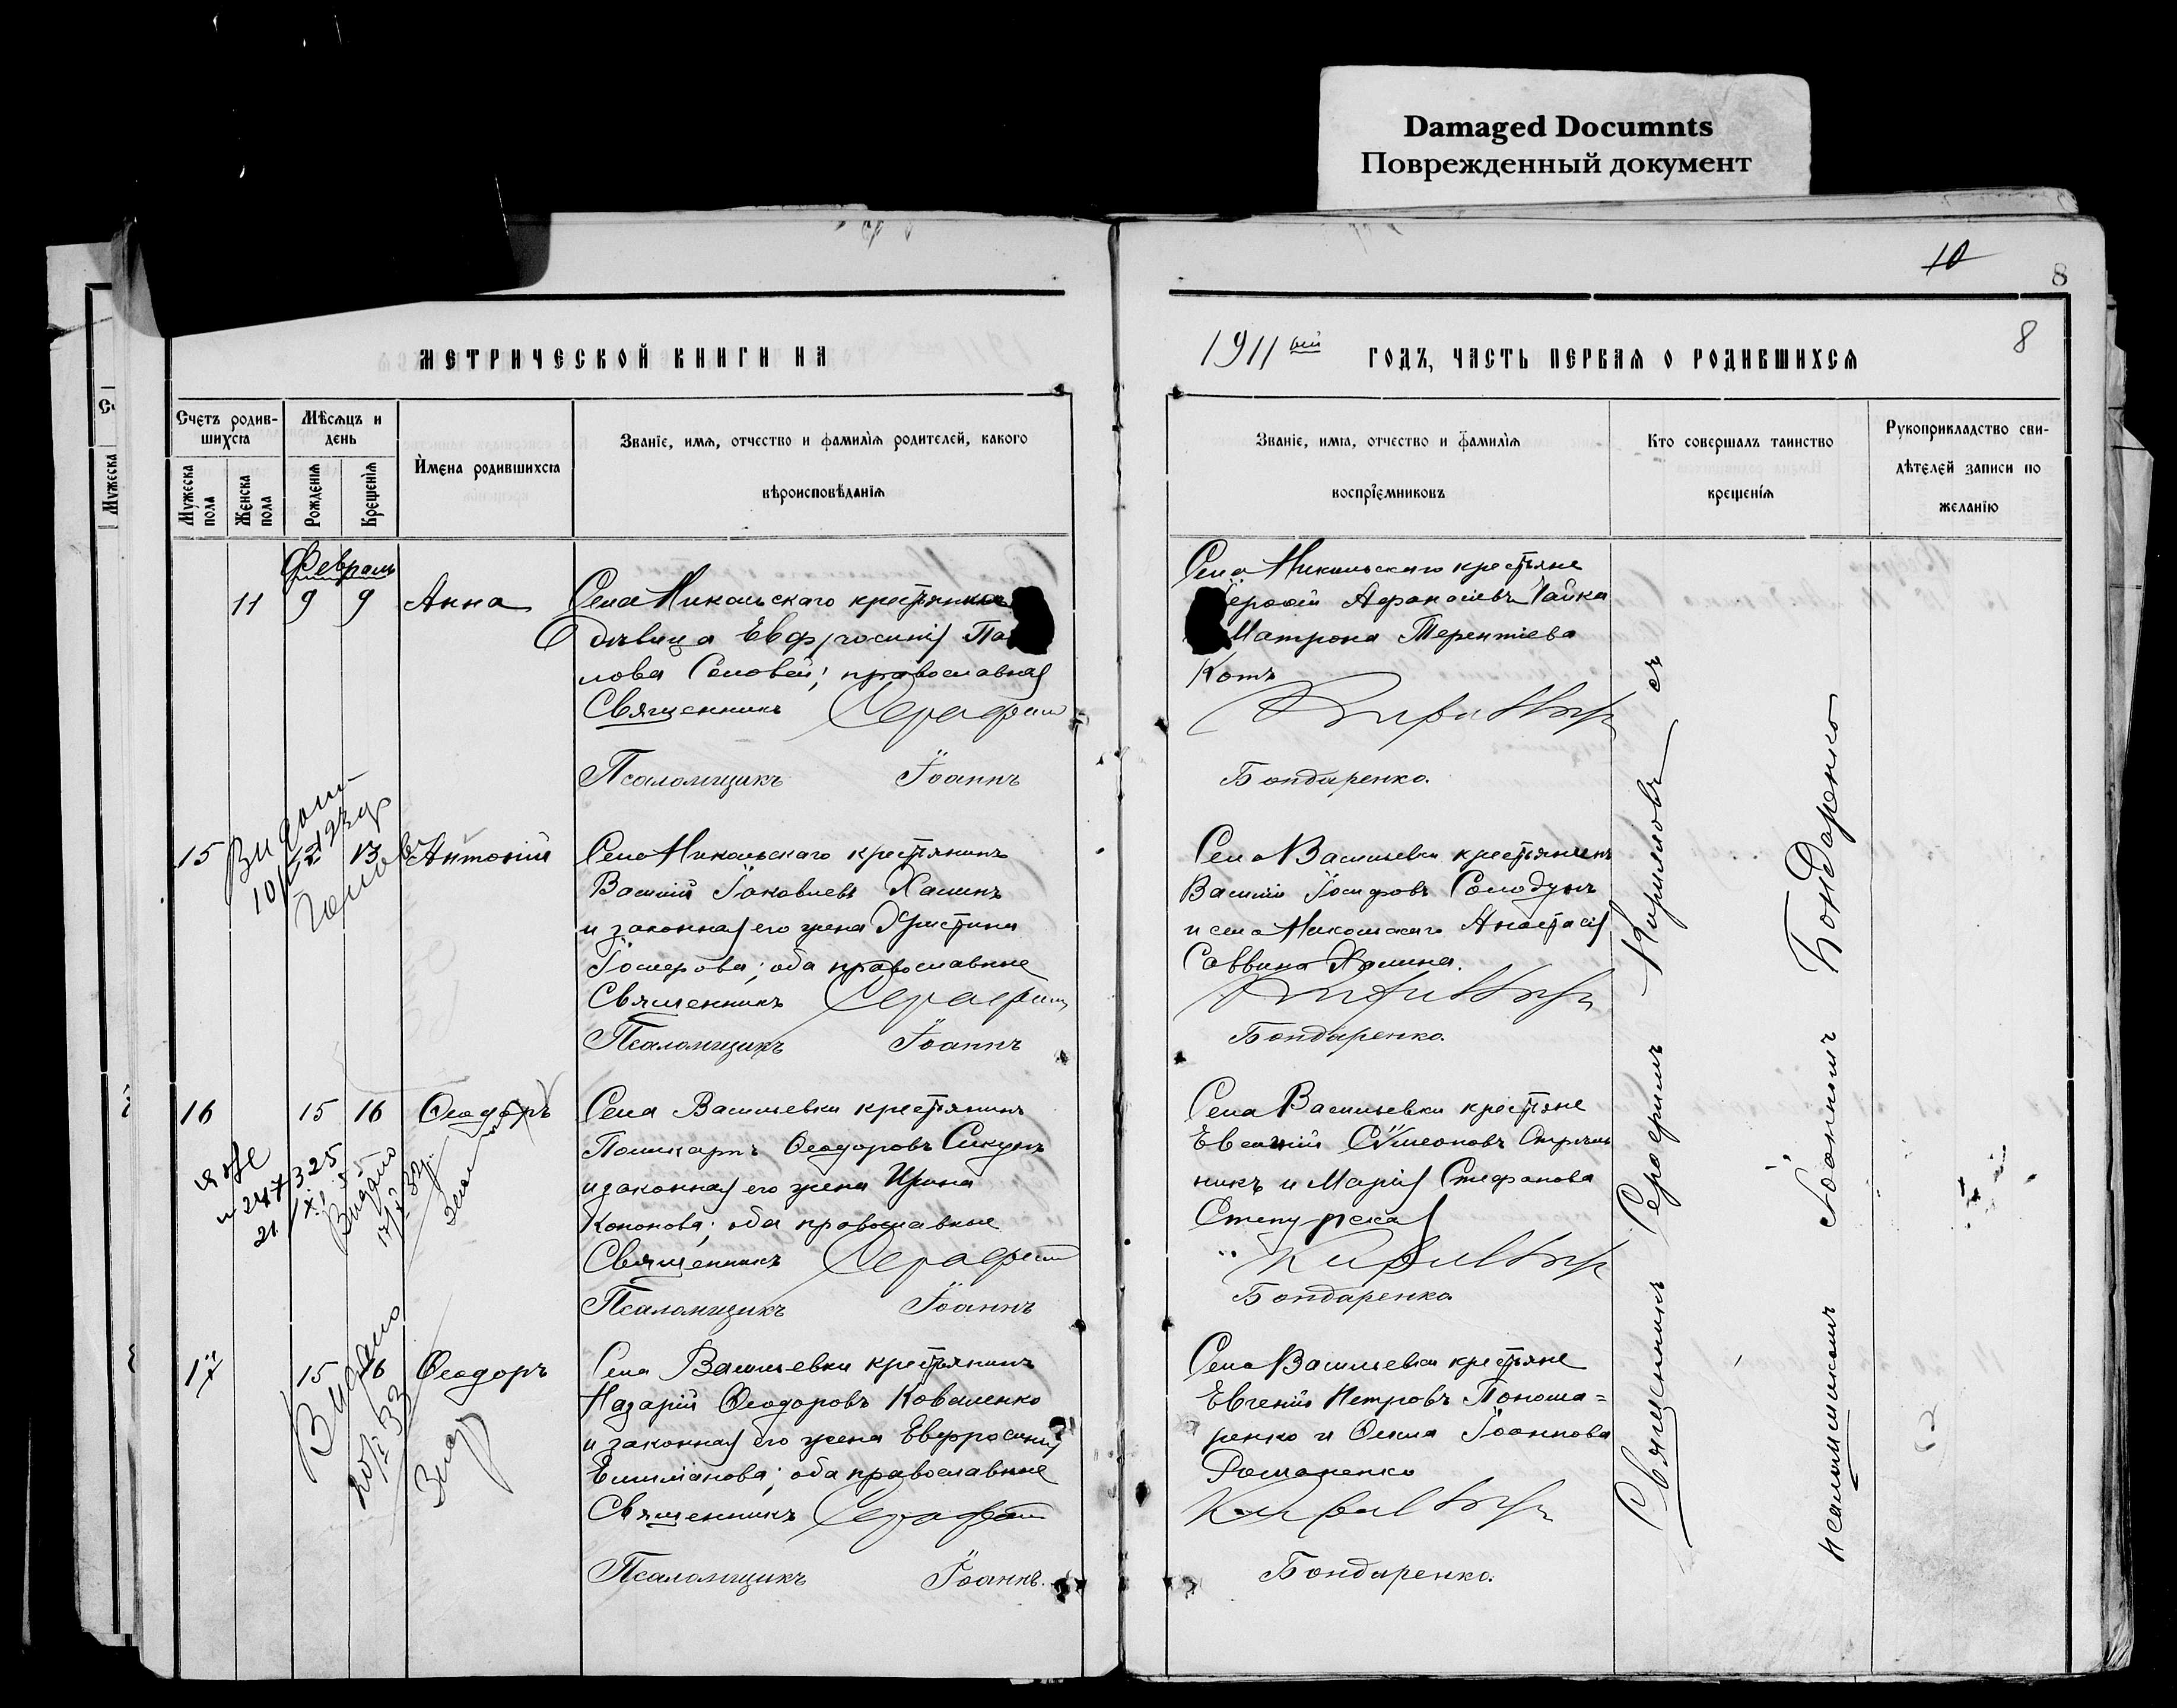 Damaged Documnts
Поврежденный документ
10
8
8
МЕТРИЧЕСКОЙ КНИГИ НА
1911 ый ГОДЪ, ЧАСТЬ ПЕРВАЯ О РОДИВШИХСЯ
Счетъ родив-
шихся
Мужеска пола
Женска пола
Мѣсяцъ и
день
Рожденія
Крещенія
Имена родившихся
Званіе, имя, отчество и фамилія родителей, какого
вѣроисповѣданія
Званіе, имя, отчество и фамилія
воспріемниковъ
Кто совершалъ таинство
крещенія
Рукоприкладство сви-
дѣтелей записи по
желанію
Февраль
11 9 9 Анна
Села Никольскаго
дѣвица Евфросинія
лова Соловей; православная
Священникъ Серафим
Псаломщикъ Іоаннъ
Села Никольскаго крестьяне
Афанасіевъ Чайка
Матрона Терентіева
Котъ
Бондаренко.
15 12 13 Антоній
Села Никольскаго крестьянинъ
Василій Іаковлевъ Халинъ
и законная его жена Христина
Іосифова; оба православные
Священникъ Серафим
Псаломщикъ Іоаннъ
Села Васильевки крестьянинъ
Василій Іосифовъ Солодунъ
и села Никольскаго Анастасія
Саввина Халина.
Бондаренко.
16 15 16 Ѳеодоръ
247/325
Видано
Села Васильевки крестьянинъ
Поликарпъ Ѳеодоровъ Сикунъ
и законная его жена Ирина
Кононова; оба православные
Священникъ Серафим
Псаломщикъ Іоаннъ
Села Васильевки крестьяне
Сѵмеоновъ
никъ и Марія Стефанова
Бондаренко
17 15 16 Ѳеодоръ
Видано
Села Васильевки крестьянинъ
Назарій Ѳеодоровъ Коваленко
и законная его жена Евфросинія
оба православные
Священникъ Серафим
Псаломщикъ Іоаннъ.
Села Васильевки крестьяне
Евгеній Петровъ Понома=
ренко и Ѳекла Іоаннова
Романенко
Бондаренко.
Священникъ Серафимъ Кирилловъ съ
псаломщикомъ Іоанномъ Бондаренко